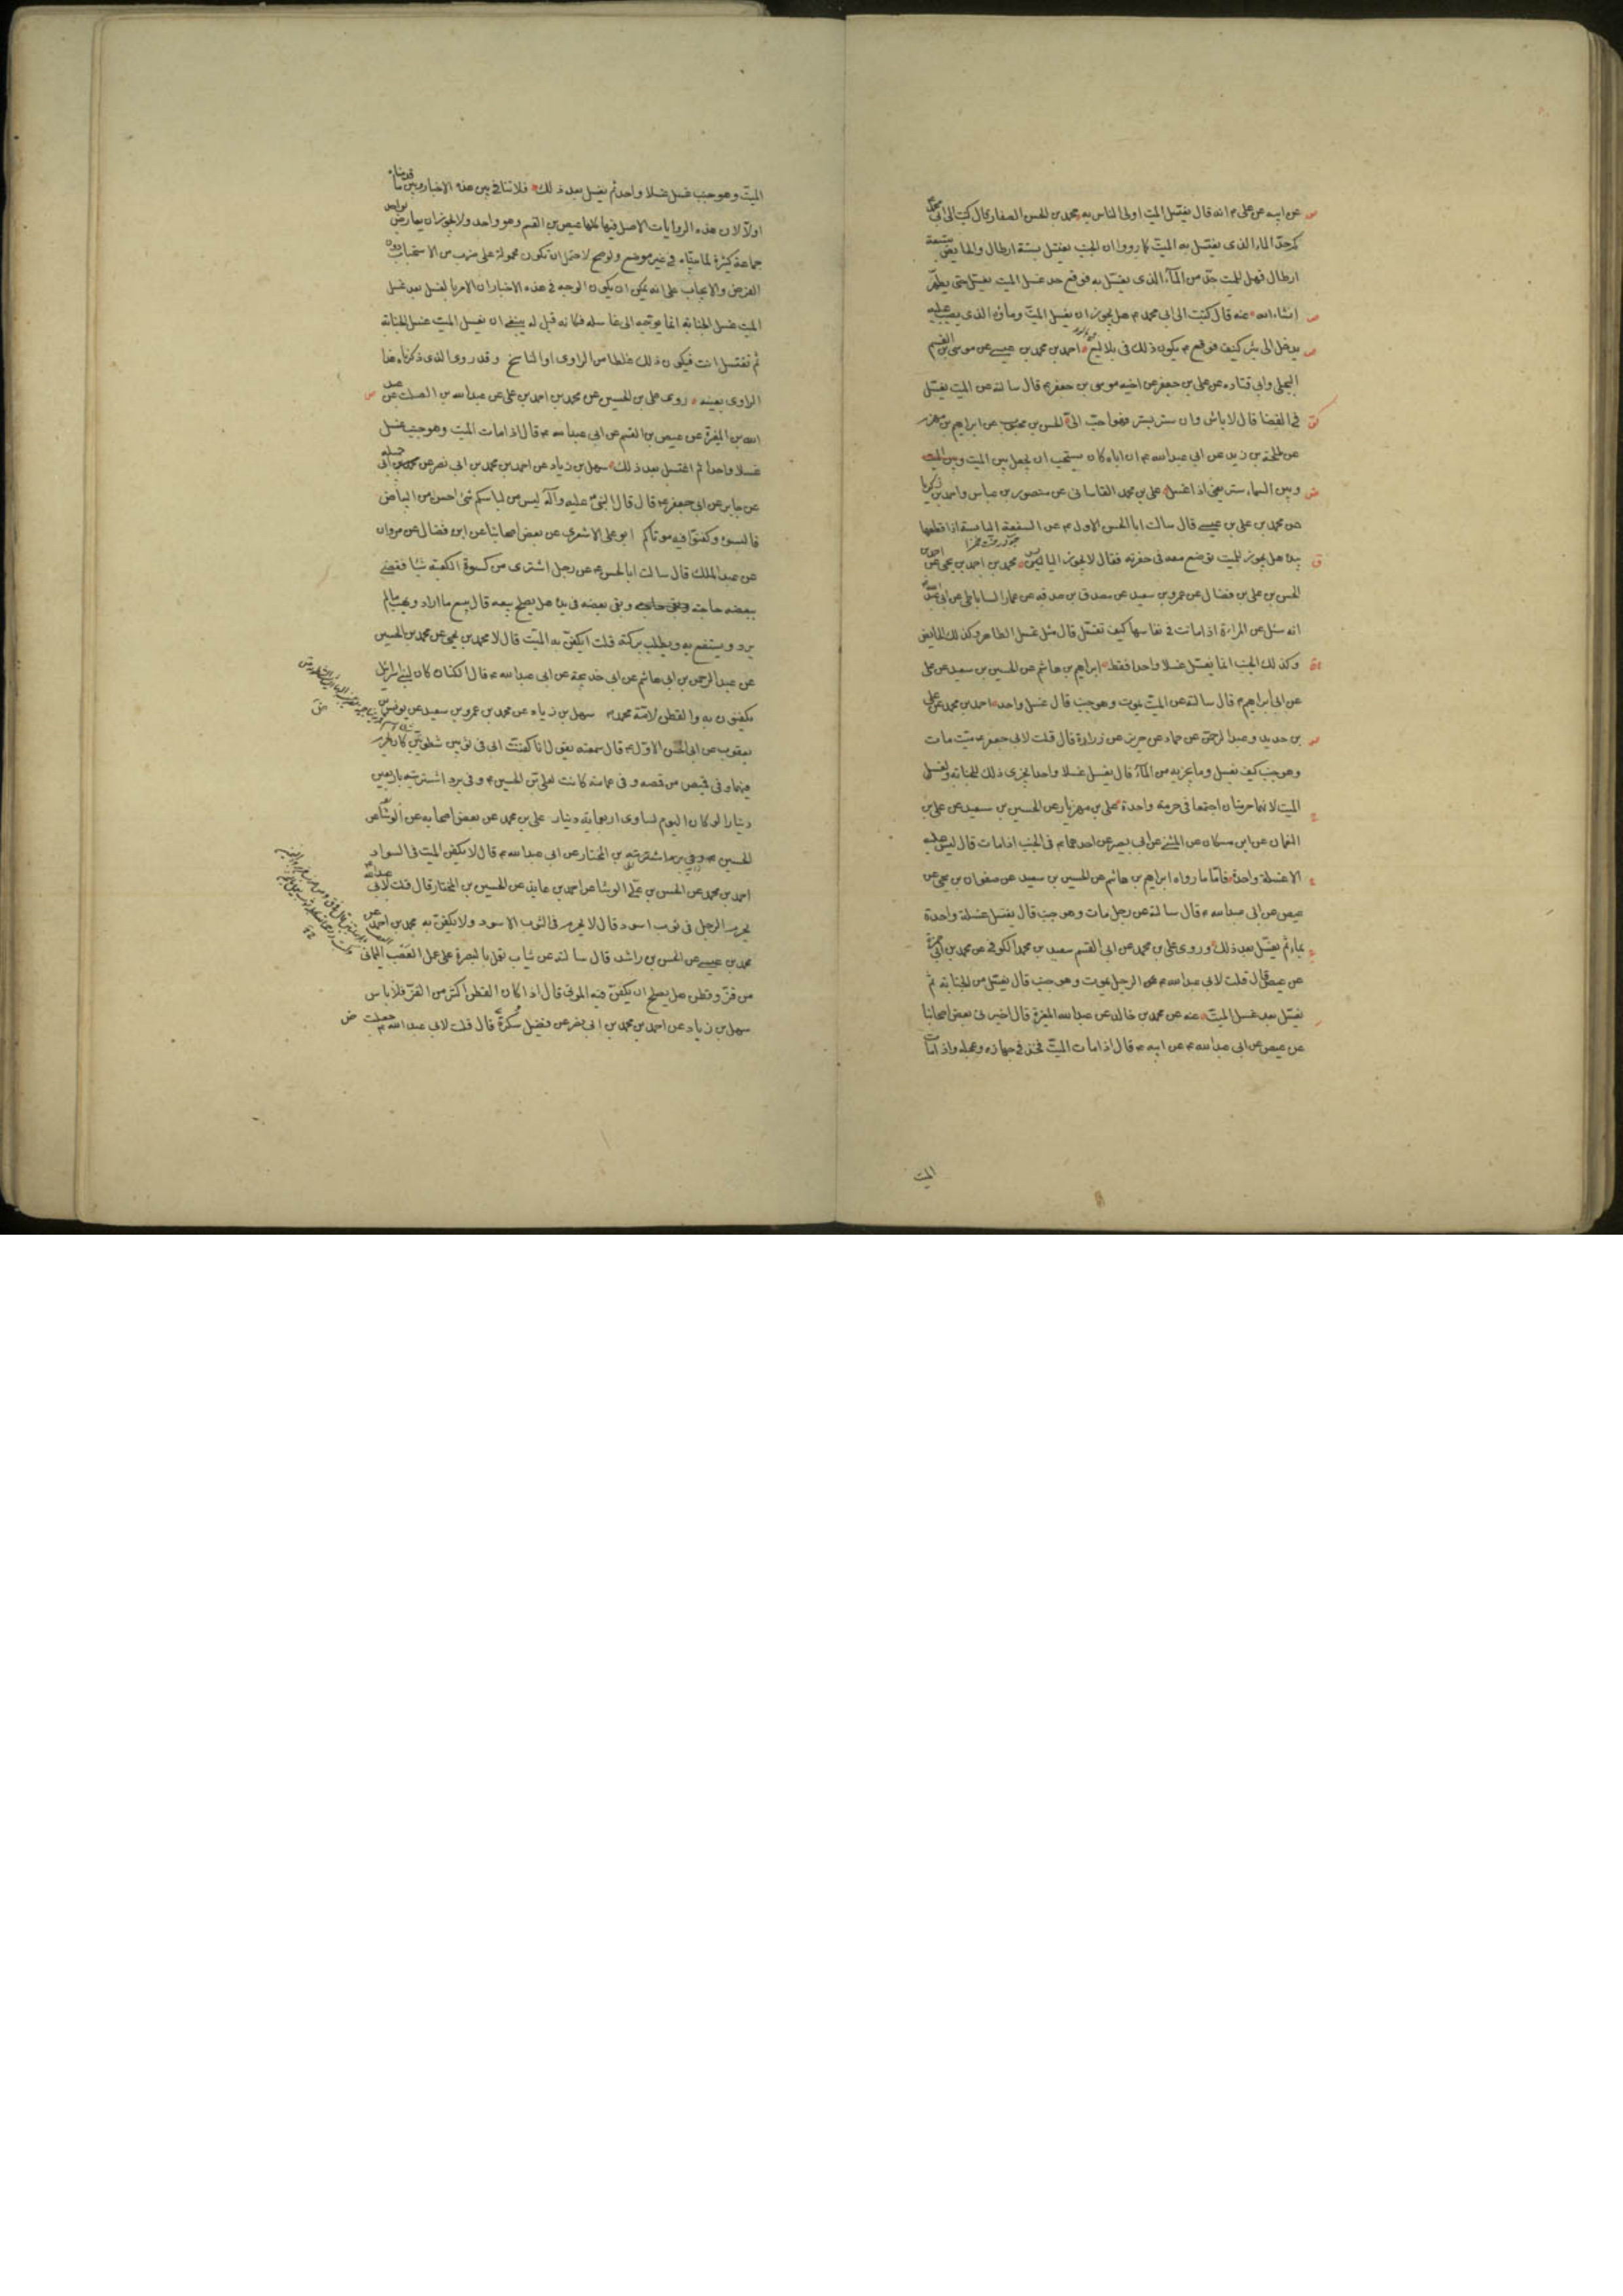 عن ابيه عن على م انه قال يغتسل الميت اولى الناس به محمد بن الحسن الصفار قال كتبت الى ابى محمد
كم حدّ الماء الذى يغتسل به الميت كما رووا ان الجنب يغتسل بستة ارطال والحايض بتسعة
ارطال فهل للميت حدّ من الماء الذى يغتسل به فوقع حد غسل الميت يغتسل حتى يطهر
انشاء الله عنه قال كتبت الى ابى محمد م هل يجوز ان يغسل الميت وماؤه الذى يصب عليه
يدخل الى بئر كنيف فوقع م يكون ذلك فى بلاليع احمد بن محمد بن عيسى عن موسى بن القسم
البجلى وابى قتاده عن على بن جعفر عن اخيه موسى بن جعفر م قال سالته عن الميت يغتسل
فى الفضا قال لا باس وان ستر بستر فهو احبّ الىّ الحسن بن محبوب عن ابراهيم بن مهزم
عن طلحة بن زيد عن ابى عبد الله م ان اباه كان يستحب ان يجعل بين الميت وبين
وبين السماء ستر يعنى اذا غسل على بن محمد القاسانى عن منصور بن عباس واحمد بن زكريا
عن محمد بن على بن عيسى قال سالت ابا الحسن الاول م عن السعفة اليابسة اذا قطعها
بيده هل يجوز للميت توضع معه فى حفرته فقال لا يجوز اليابس محمد بن احمد بن يحيى عن احمد بن
الحسن بن على بن فضال عن عمرو بن سعيد عن مصدق بن صدقه عن عمار الساباطى عن ابى عبد الله
انه سئل عن المراءة اذا ماتت فى نفاسها كيف تغسّل قال مثل غسل الطاهر وكذلك الحايض
وكذلك الجنب انما يغسّل غسلا واحدا فقط ابراهيم بن هاشم عن الحسين بن سعيد عن على
عن ابى ابراهيم م قال سالته عن الميت يموت وهو جنب قال غسل واحد احمد بن محمد عن على
بن حديد وعبد الرحمن عن حماد عن حريز عن زرارة قال قلت لابى جعفر م ميّت مات
وهو جنب كيف يغسل وما يجزيه من الماء قال يغسل غسلا واحدا يجزى ذلك للجنابه ولغسل
الميت لانهما حرمتان اجتمعتا فى حرمة واحدة على بن مهزيار عن الحسين بن سعيد عن على بن
النعمان عن ابن مسكان عن المثنى عن ابى بصير عن احدهما م فى الجنب اذا مات قال ليس عليه
الا غسلة واحدة فاما ما رواه ابراهيم بن هاشم عن الحسين بن سعيد عن صفوان بن يحيى عن
عيص عن ابى عبد الله م قال سالته عن رجل مات وهو جنب قال يغسل غسلة واحدة
بماء ثم يغسّل بعد ذلك وروى على بن محمد عن ابى القسم سعيد بن محمد الكوفى عن محمد بن ابى حمزة
عن عيص قال قلت لابى عبد الله م الرجل يموت وهو جنب قال يغسّل من الجنابة ثم
يغسّل بعد غسل الميت عنه عن محمد بن خالد عن عبد الله المغيرة قال اخبرنى بعض اصحابنا
عن عيص عن ابى عبد الله م عن ابيه م قال اذا مات الميّت فخذ فى جهازه وعجله واذا مات
الميت
الميّت وهو جنب غسل غسلا واحدا ثم يغسل بعد ذلك فلا تنافى بين هذه الاخبار وبين ما قدمناه
اولا لان هذه الروايات الاصل فيها كلها عيص بن القسم وهو واحد ولا يجوز ان يعارض بواحد
جماعة كثيرة لما بيناه فى غير موضع ولو صح لاحتمل ان تكون محمولة على ضرب من الاستحباب دون
الفرض والايجاب على انه يمكن ان يكون الوجه فى هذه الاخبار ان الامر بالغسل بعد غسل
الميت غسل الجنابة انما يوجه الى غاسله فكانه قيل له ينبغى ان تغسل الميت غسل الجنابة
ثم تغتسل انت فيكون ذلك غلطا من الراوى او الناسخ وقد روى الذى ذكرناه هذا
الراوى بعينه روى على بن الحسين عن محمد بن احمد بن على عن عبد الله بن الصلت عن عبد
الله بن المغيرة عن عيص بن القسم عن ابى عبد الله م قال اذا مات الميت وهو جنب غسل
غسلا واحدا ثم اغتسل بعد ذلك سهل بن زياد عن احمد بن محمد بن ابى نصر عن
عن جابر عن ابى جعفر م قال قال النبى عليه وآله ليس من لباسكم شئ احسن من البياض
فالبسوه وكفنوا فيه موتاكم ابو على الاشعرى عن بعض اصحابنا عن ابن فضال عن مروان
عن عبد الملك قال سالت ابا الحسن م عن رجل اشترى من كسوة الكعبة شيئا فقضى
ببعضه حاجته وبقى بعضه فى يده هل يصلح بيعه قال يبيع ما اراد ويهب ما لم
يرد ويستنفع به ويطلب بركته قلت ايكفن به الميت قال لا محمد بن يحيى عن محمد بن الحسين
عن عبد الرحمن بن ابى هاشم عن ابى خديجة عن ابى عبد الله م قال الكتان كان لبنى اسرائيل
يكفنون به والقطن لامة محمد م سهل بن زياد عن محمد بن عمرو بن سعيد عن يونس بن
يعقوب عن ابى الحسن الاول م قال سمعته يقول انا كفنت ابى فى ثوبين شطويين كان يحرم
فيهما وفى قميص من قمصه وفى عمامة كانت لعلى بن الحسين م وفى برد اشتريته باربعين
دينارا لو كان اليوم لساوى اربعمائة دينار على بن محمد عن بعض اصحابه عن الوشا عن
الحسين بن المختار عن ابى عبد الله م قال لا يكفن الميت فى السواد
احمد بن محمد عن الحسن بن على الوشا عن احمد بن عايذ عن الحسين بن المختار قال قلت لابى عبد الله
يحرم الرجل فى ثوب اسود قال لا يحرم فى الثوب الاسود ولا يكفن به محمد بن احمد عن
محمد بن عيسى عن الحسن بن راشد قال سالته عن ثياب تعمل بالبصرة على عمل العصب اليمانى
من قز وقطن هل يصلح ان يكفن فيه الموتى قال اذا كان القطن اكثر من القز فلا باس
سهل بن زياد عن احمد بن محمد بن ابى نصر عن فضيل سكرة قال قلت لابى عبد الله م جعلت